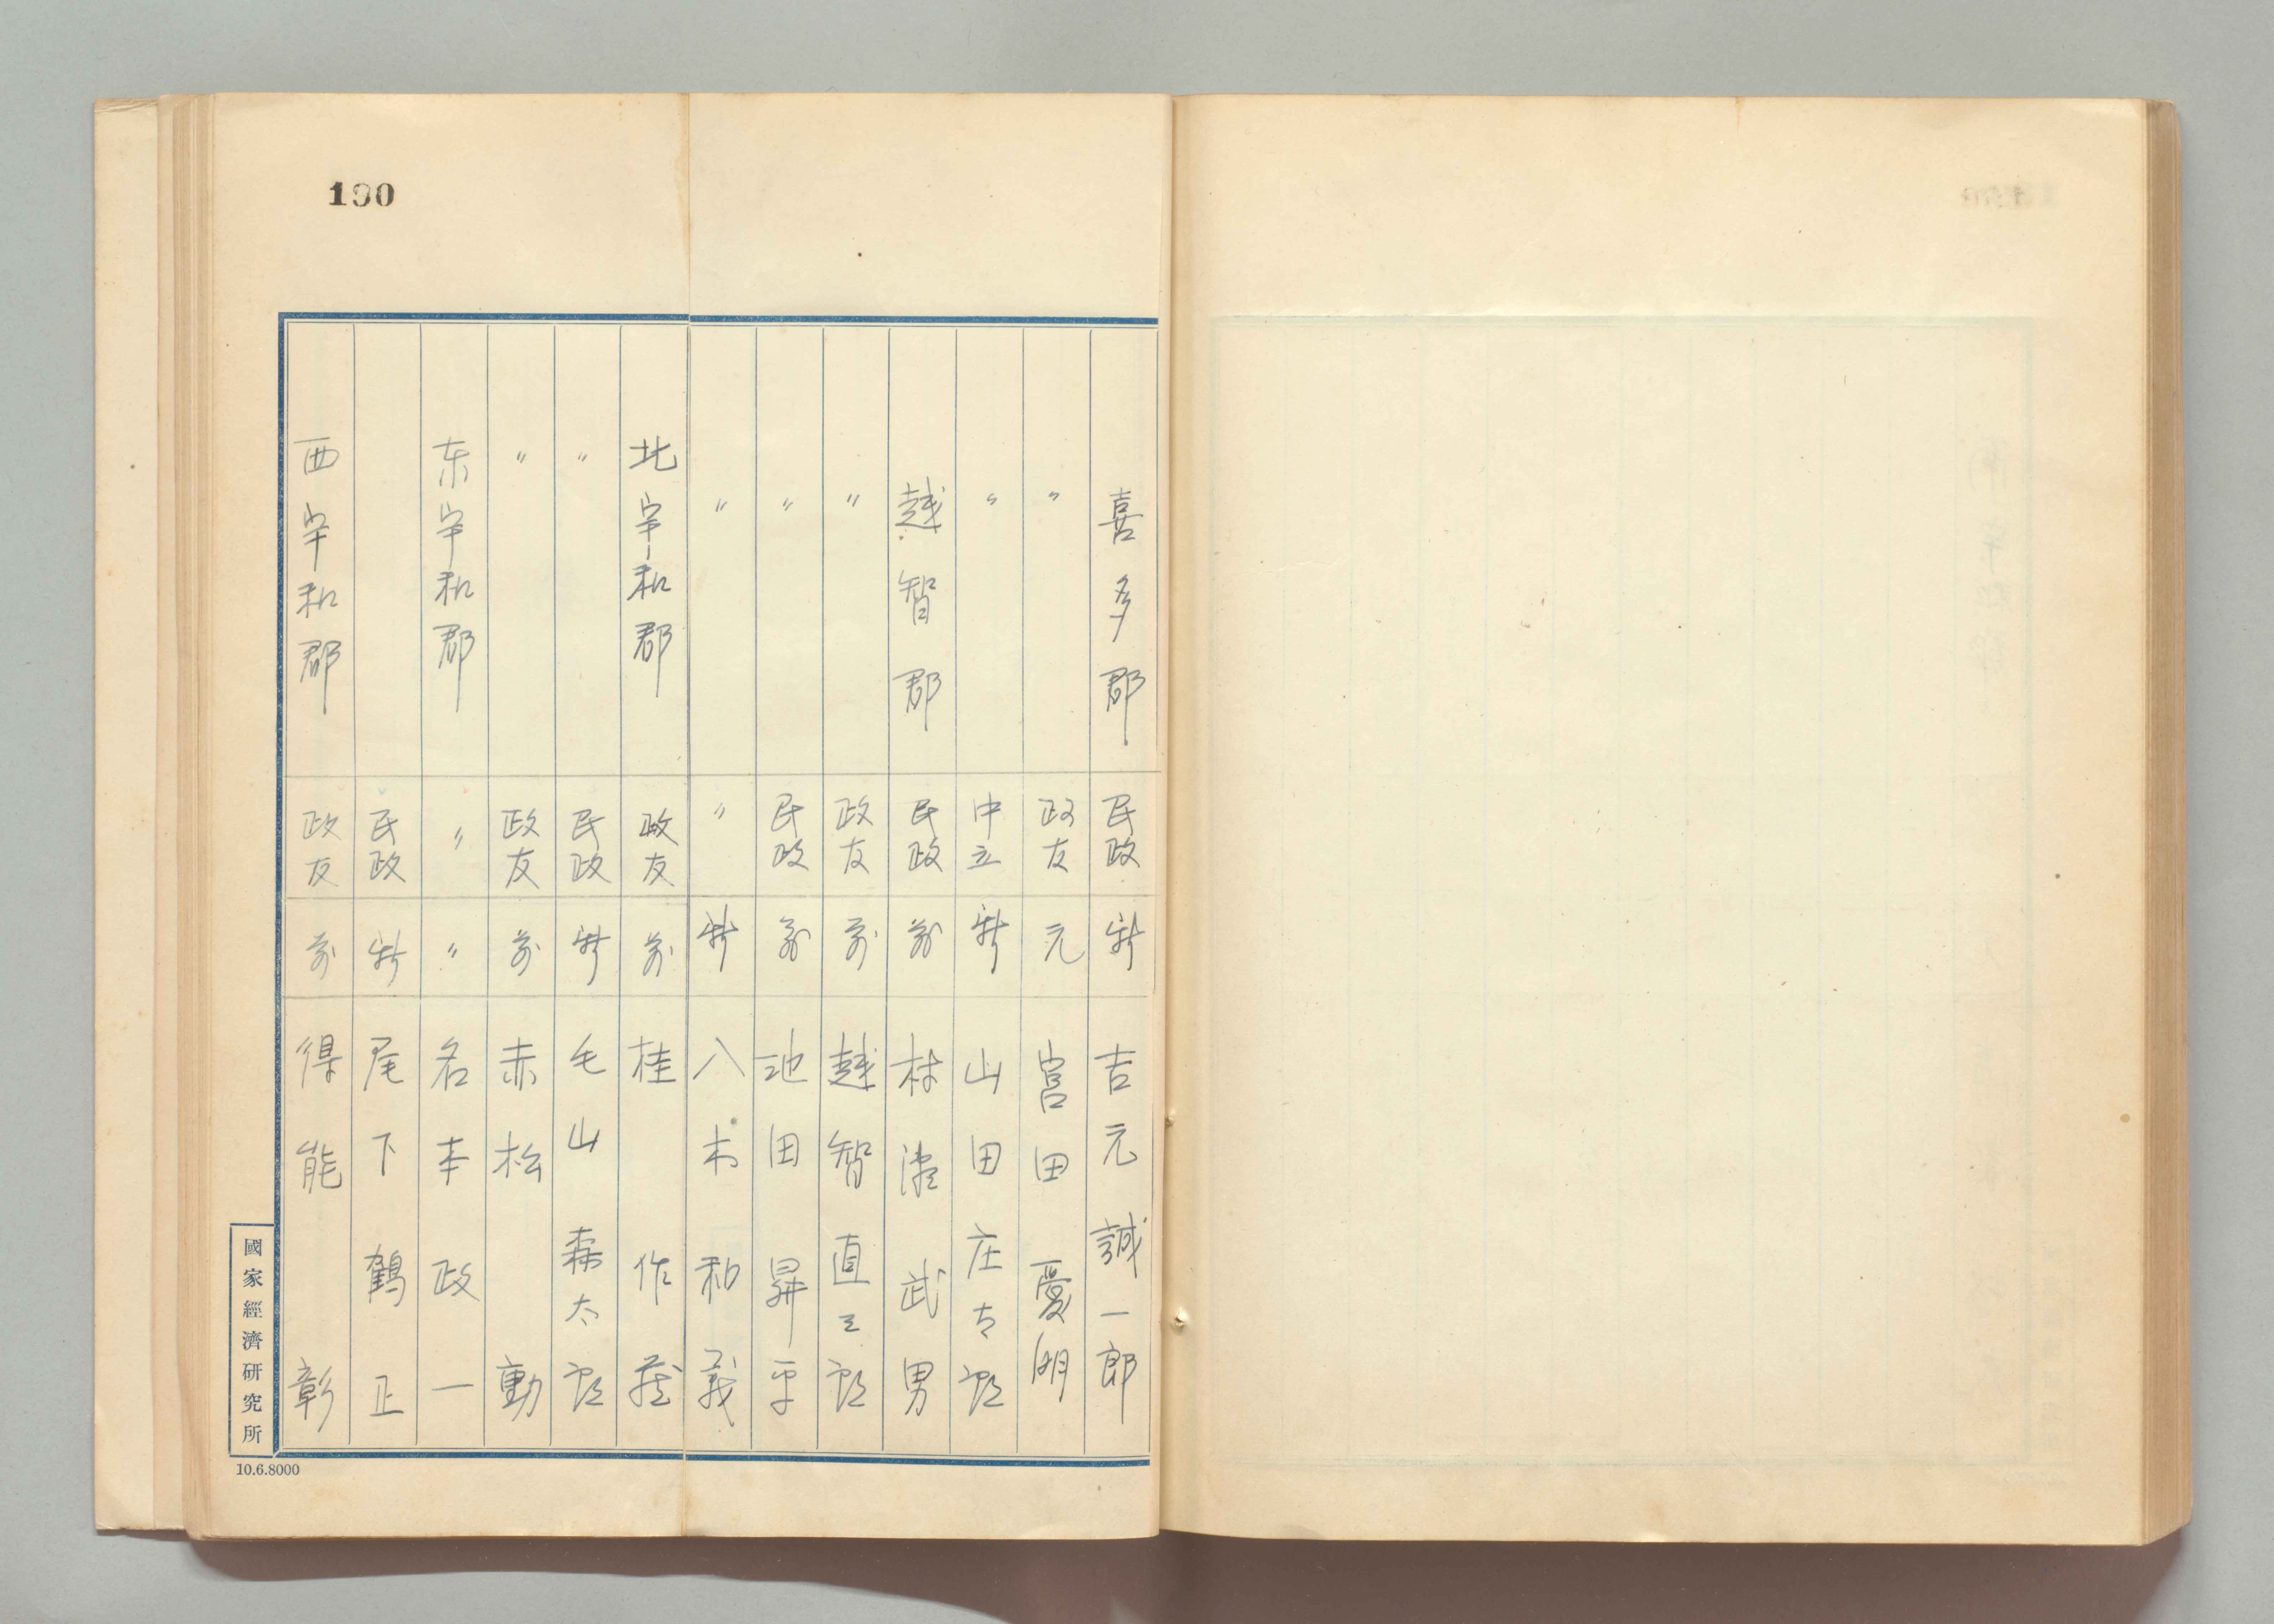 190
喜多郡 民政 新 吉元誠一郎
〃 政友 元 宮田愛明
〃 中立 新 山田庄太郎
越智郡 民政 前 村瀬武男
〃 政友 前 越智直三郎
〃 民政 前 池田昇平
〃 〃 新 八木和義
北宇和郡 政友 前 桂作蔵
〃 民政 新 毛山森太郎
〃 政友 前 赤松勲
东宇和郡 〃 〃 名本政一
民政 新 尾下鶴正
西宇和郡 政友 前 得能彰
國家經濟研究所
10.6.8000